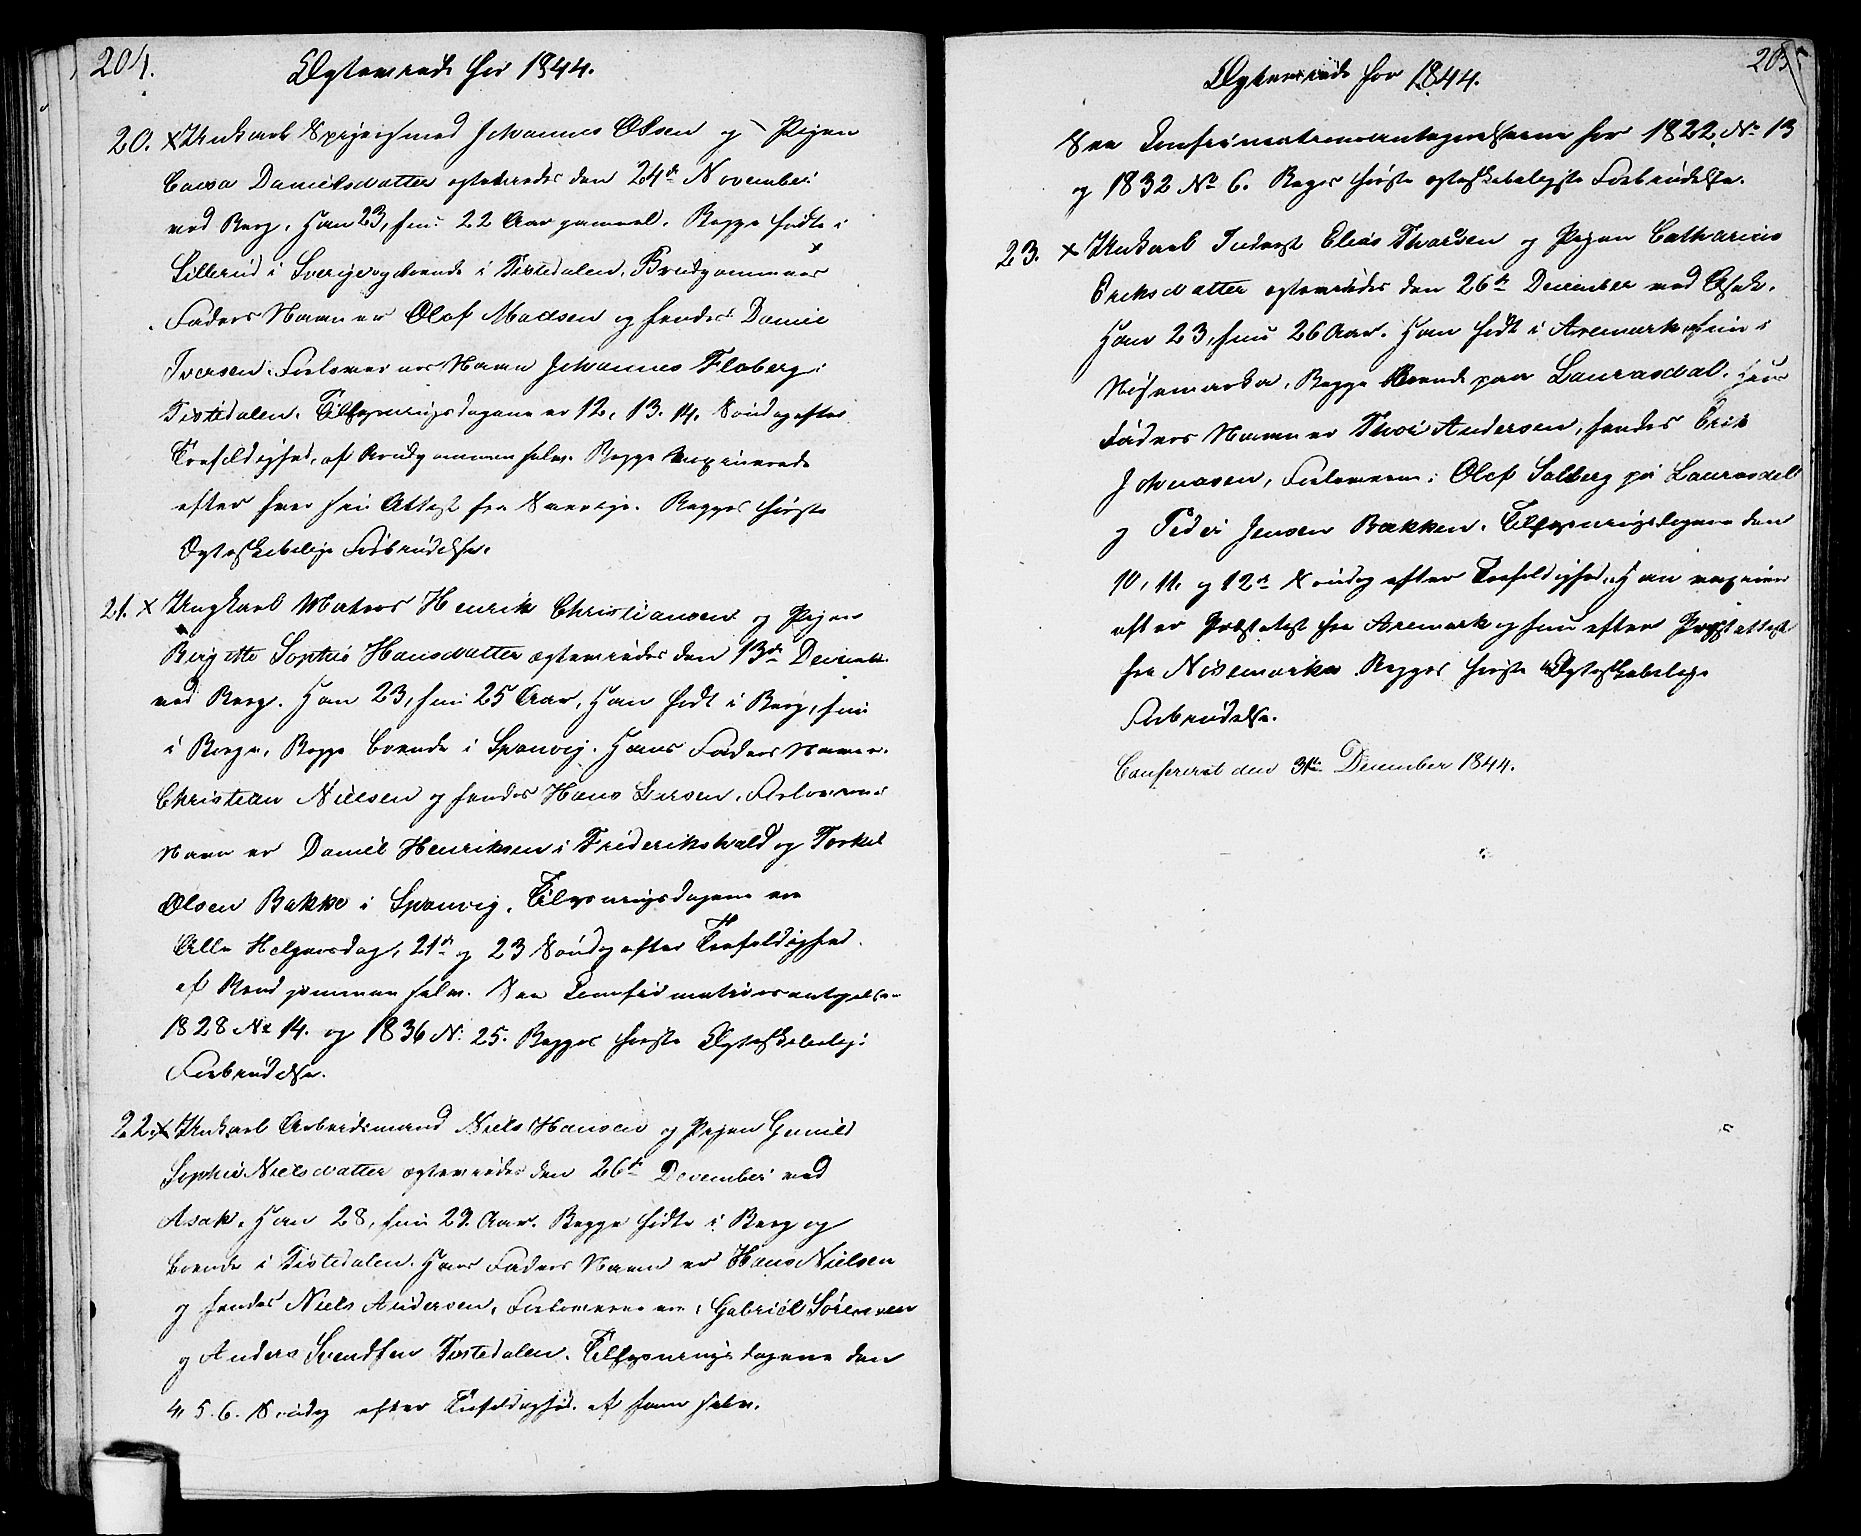 204.
Ægteviede for 1844.
20. x Unkarl Johannes Olsen og Pigen
Caisa Danielsdatter ægteviedes den 24de November
ved Berg. Han 23, hun 22 Aar gammel. Begge fødte i
Sillerud i Sverige og boende i Tistedalen. Brudgommens
Faders Navn er Olof Madsen og hendes Daniel
Iversen. Forlovernes Navn Johannes Floberg i
Tistedalen. Tillysningsdagene er 12, 13. 14. Søndag efter
Trefoldighed, af Brudgommen selv. Begge vaxinerede
efter hver sin Attest fra Sverige. Begges første
Ægteskabelige Forbindelse.
21. x Ungkarl Matros Henrik Christiansen og Pigen
Bergitte Sophie Hansdatter ægteviedes den 13de Decemb.
ved Berg. Han 23, hun 25 Aar, Han født i Berg, hun
i Borge, Begge boende i Sponvig. Hans Faders Navn er
Christian Nielsen og hendes Hans Larsen. Forlovernes
Navn er Daniel Henriksen i Friderikshald og Torkel
Olsen Bakke i Sponvig. Tillysningsdagene ere
Alle Helgensdag, 21de og 23 Søndag efter Trefoldighed.
af Brudgommen selv. See Confirmationsantegnelsen
1828 No 14. og 1836 N. 25. Begges første Ægteskabelige
Forbindelse.
22. x Unkarl Arbeidsmand Niels Hansen og Pigen Gunild
Sophie Nielsdatter ægteviedes den 26de December ved
Asak. Han 28, hun 29. Aar. Begge fødte i Berg og
boende i Tistedalen. Hans Faders Navn er Hans Nielsen
og hendes Niels Andersen. Forloverne ere Gabriel Sørensen
og Anders Svendsen Tistedalen. Tillysningsdagene den
4. 5. 6. Søndag efter Trefoldighed. af ham selv.
205
Ægteviede for 1844.
See Confirmationsantegnelserne for 1822. No 13
og 1832 No 6. Begges første ægteskabeligste Forbindelse.
23. x Unkarl Inderst Elias Thorsen og Pigen Catharine
Eriksdatter ægteviedes den 26de December ved Asak.
Han 23, hun 26 Aar. Han født i Aremark, hun i
Nissemarka, Begge boende paa Laurasdal. Hans
Faders Navn er Thor Andersen, hendes Erik
Johnasen, Forloverne: Olof Solberg på Laurasdal
og Peder Jensen Bakken. Tillysningsdagene den
10, 11. og 12de Søndag efter Trefoldighed. Han vaxineret
efter Præstatest fra Aremark og hun efter Præstattest
fra Nissemarka. Begges første Ægteskabelige
Forbindelse.
Confereret den 31te December 1844.